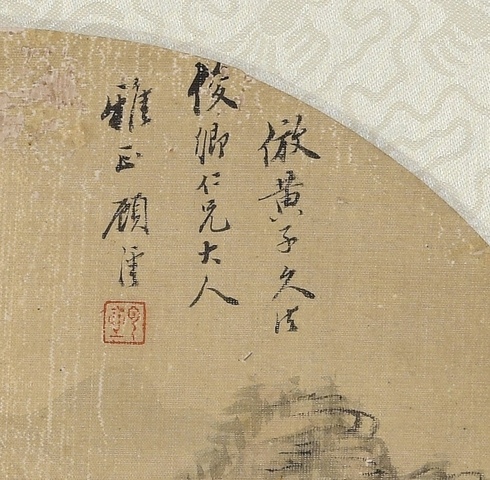 倣黃子久法
俊卿仁兄大人
雅正顧澐